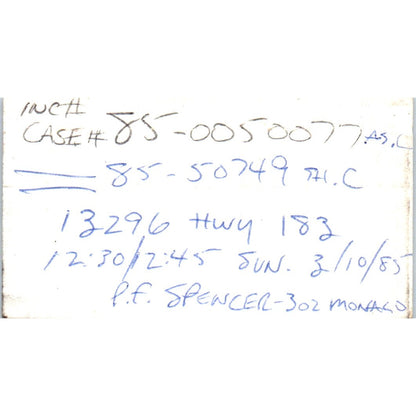 INC#
CASE# 85-0050077 AS.C
85-50749 TH.C
13296 HWY 183
12:30/12:45 SUN. 3/10/85
P.F. SPENCER-302 MONACO